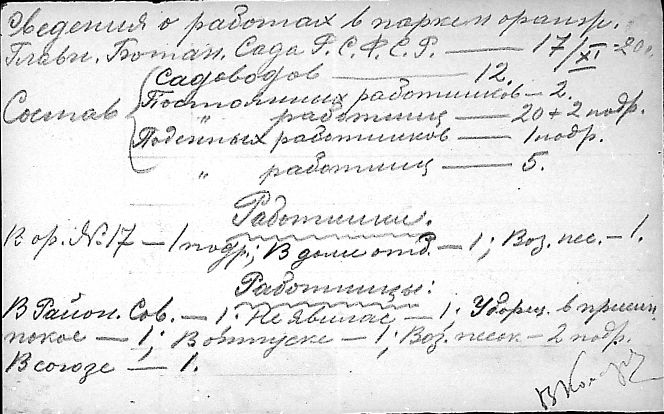 Сведения о работах в парке и оранж.
Главн. Ботан. Сада Р.С.Ф.С.Р. — 17/XI-20 г.
Садоводов — 12.
Состав Постоянных работников — 2.
" работниц — 20 + 2 подр.
Поденных работников — 1 подр.
" работниц — 5.
Работники.
В ор. № 17 — 1 подр.; В доме отд. — 1; Воз. пес. — 1.
Работницы:
В Район. Сов. — 1; Не явилась — 1; Уборщ. в
покое — 1; В отпуске — 1; Воз. песок — 2 подр.
В союзе — 1.